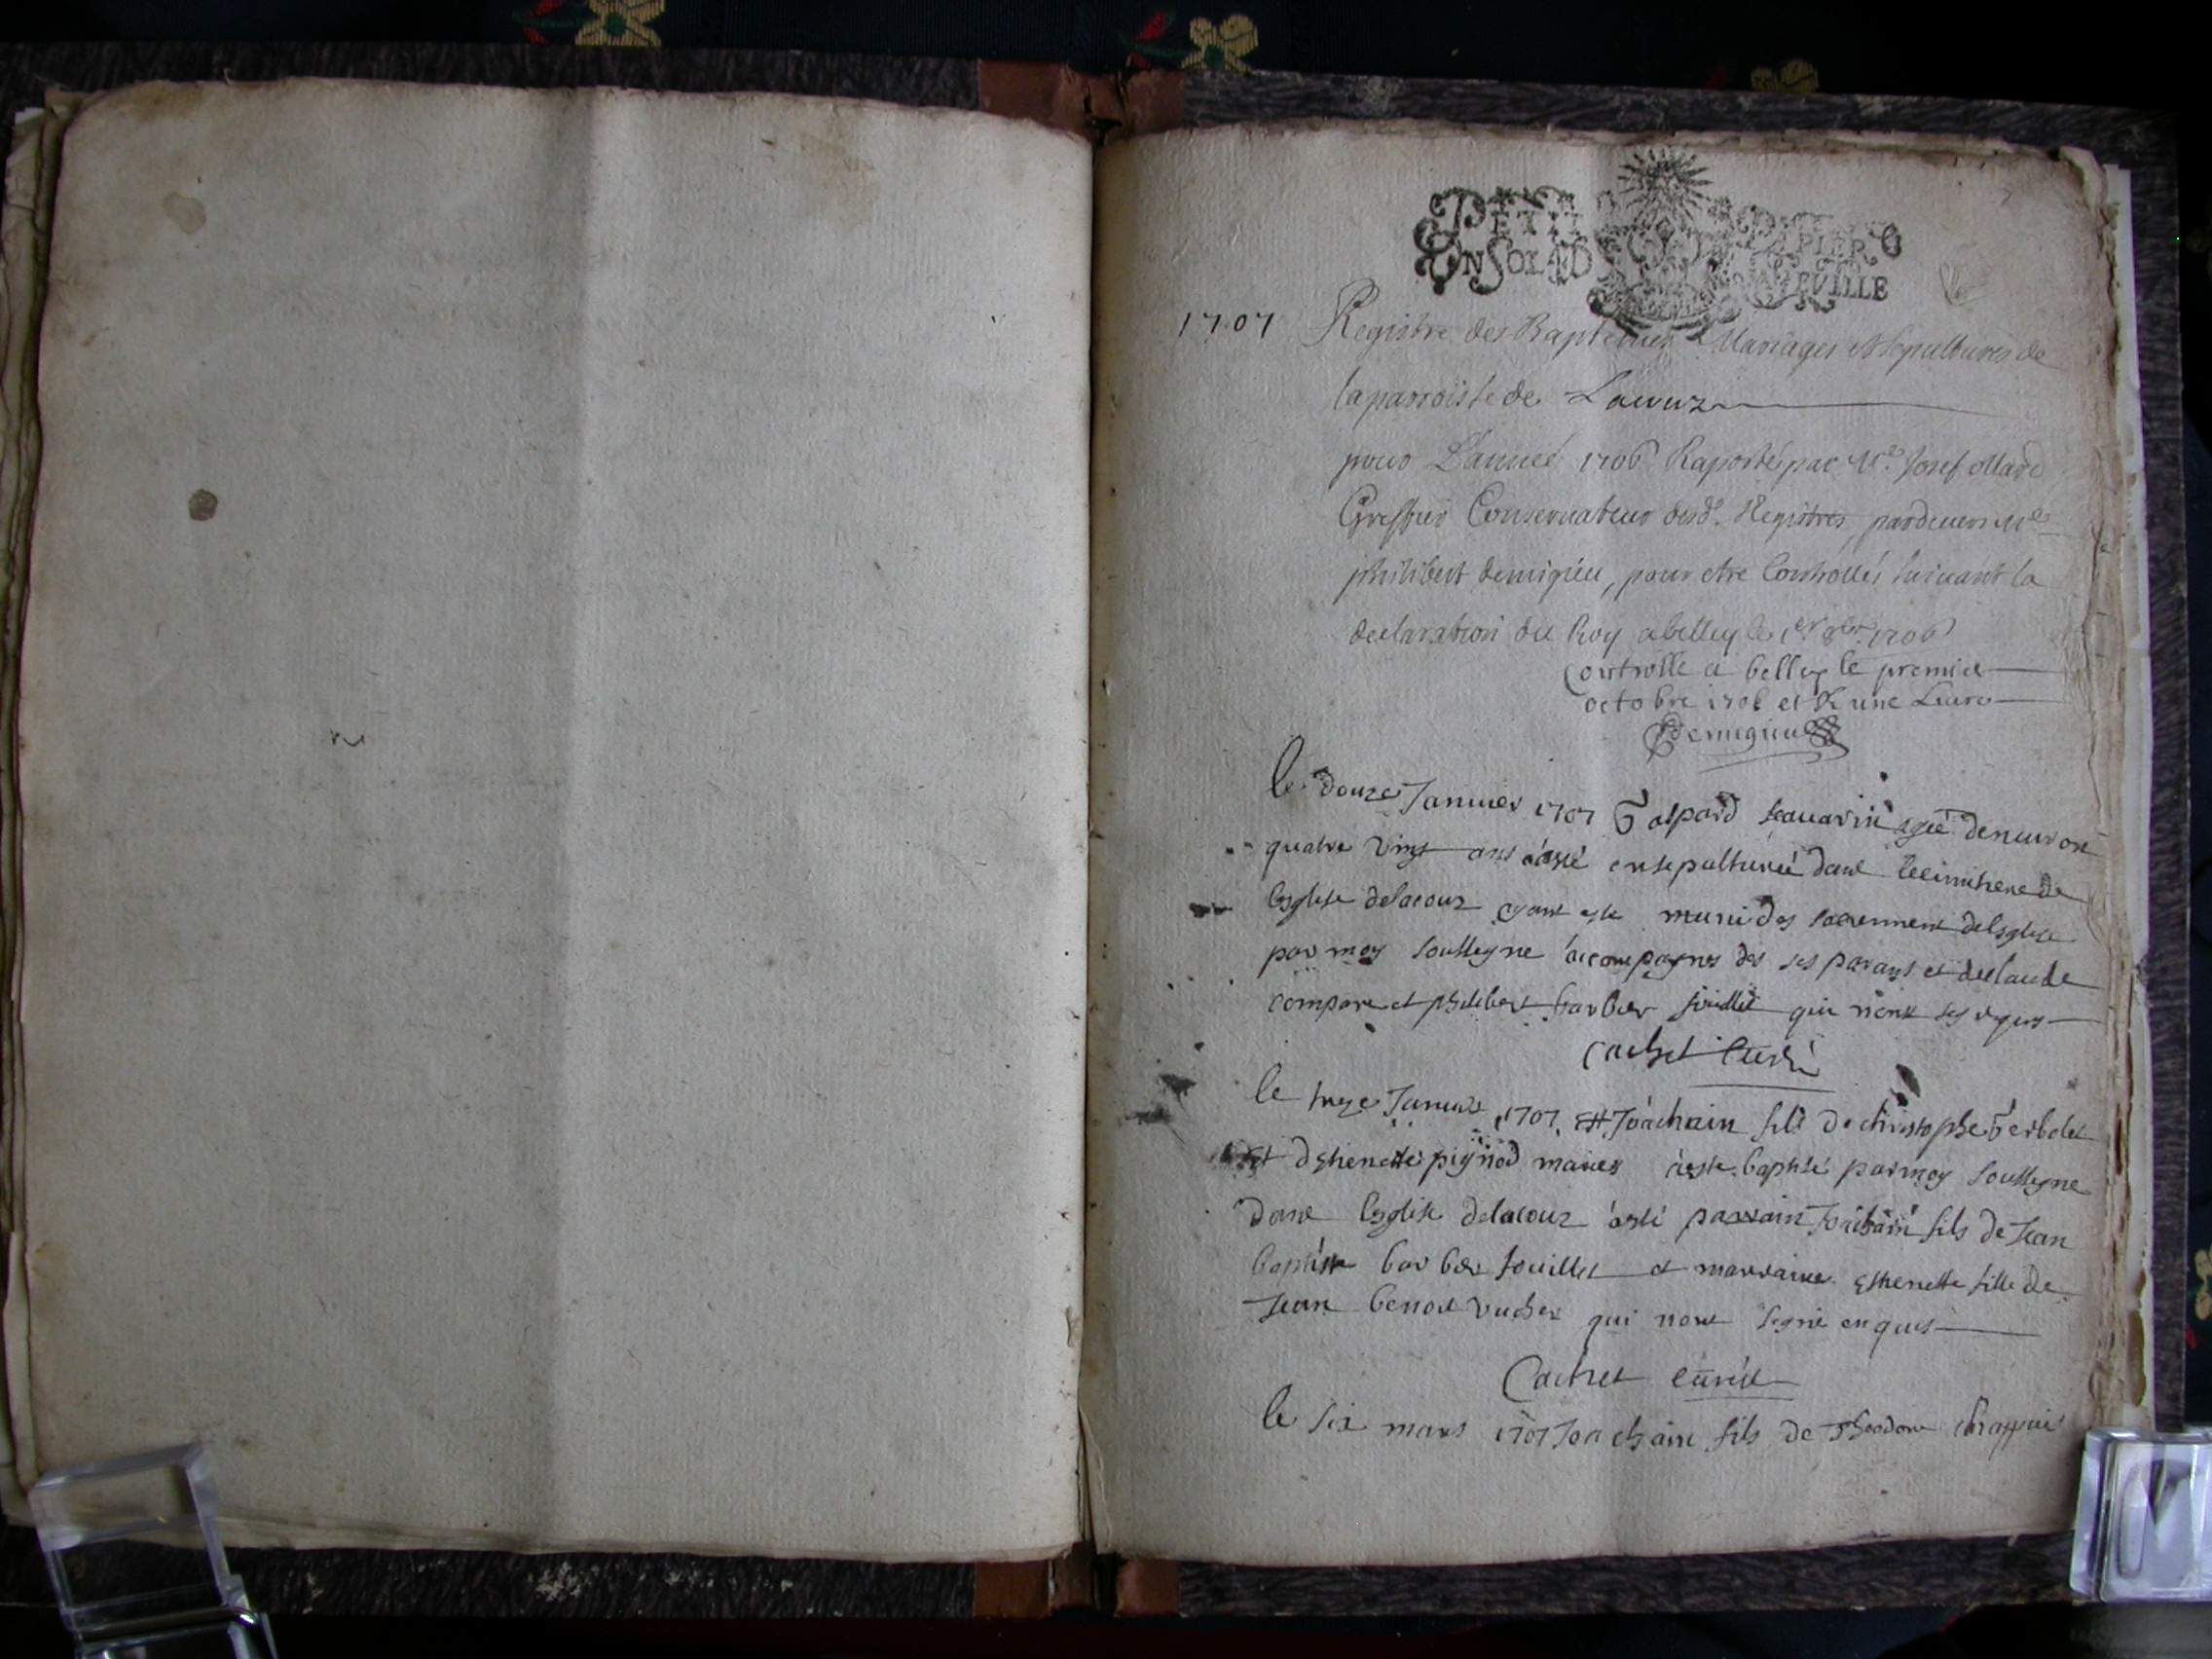 PETIT PAPIER
UN SOL 
1707 Registre des Baptemes Mariages et Sepultures de
la parroisse de Lacouz
pour L'année 1706 Raporté par Me Josef
Greffier Conservateur desd. Registres, pardevers Me
philibert demigieu, pour etre Controllés suivant la
declaration du Roy a belley le 1er 8bre 1706
Controlle a belley le premier
octobre 1706 et R une Livre
Demigieu
le douze Janvier 1707 Gaspard sauarin agé denuiron
quatre vingt ans a esté ensepulturé dans le cimitiere de
lesglise delacouz ayant este muni des sacrement de lesglise
par moy soussigne accompagnes des ses parans et de claude
compare et philibert barbier souillet qui nont seg
Cachet Curé
le Janvier 1707 Joachain fils de christophe
et desthenette pignod maries a este baptisé par moy soussigne
dans lesglise delacouz a esté parrain Joachain fils de Jean
baptiste barbier souillet et marraine Esthenette fille de
Jean benoit vucher qui nont signé enquis
Cachet curé
le six mars 1707 Joachain fils de Theodore